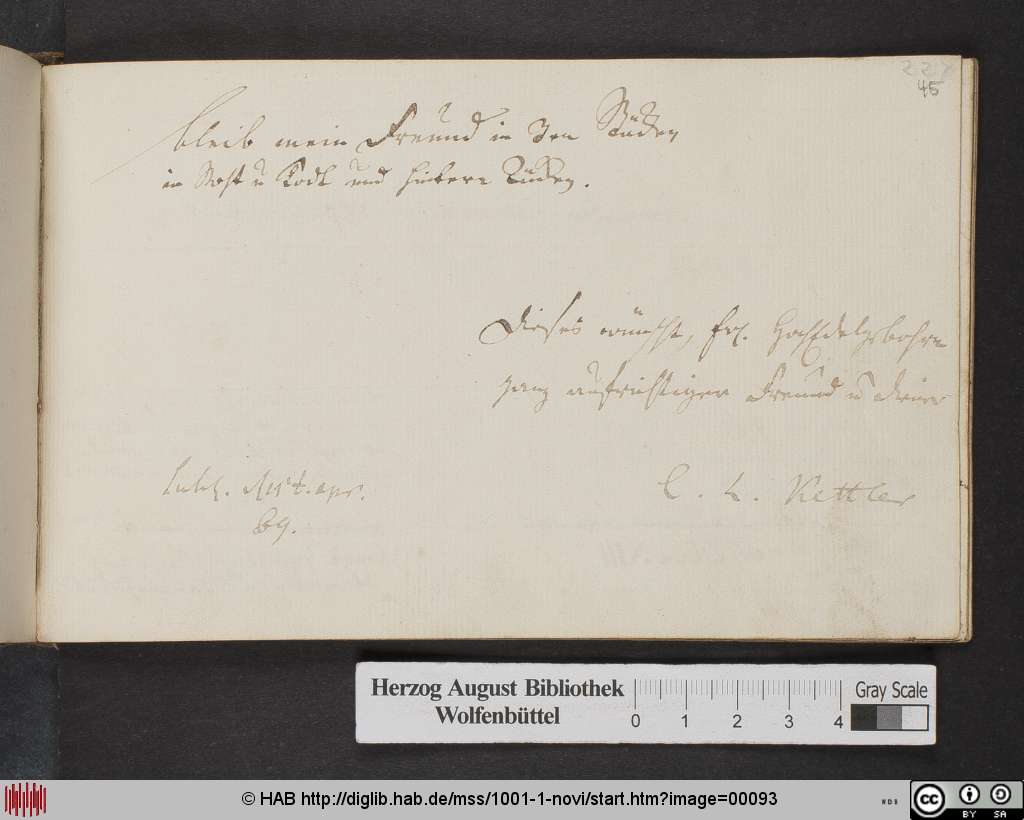 227
45
bleib mein Freund in den
in Noth u Todt und hinterm Rücken.
Dieses wünscht, Ew. HochEdelgebohrn
ganz aufrichtiger Freund u Diener
apr.
69.
C. L. Kettler
Herzog August Bibliothek
Wolfenbüttel
0 1 2 3 4
Gray Scale
© HAB http://diglib.hab.de/mss/1001-1-novi/start.htm?image=00093
cc BY SA